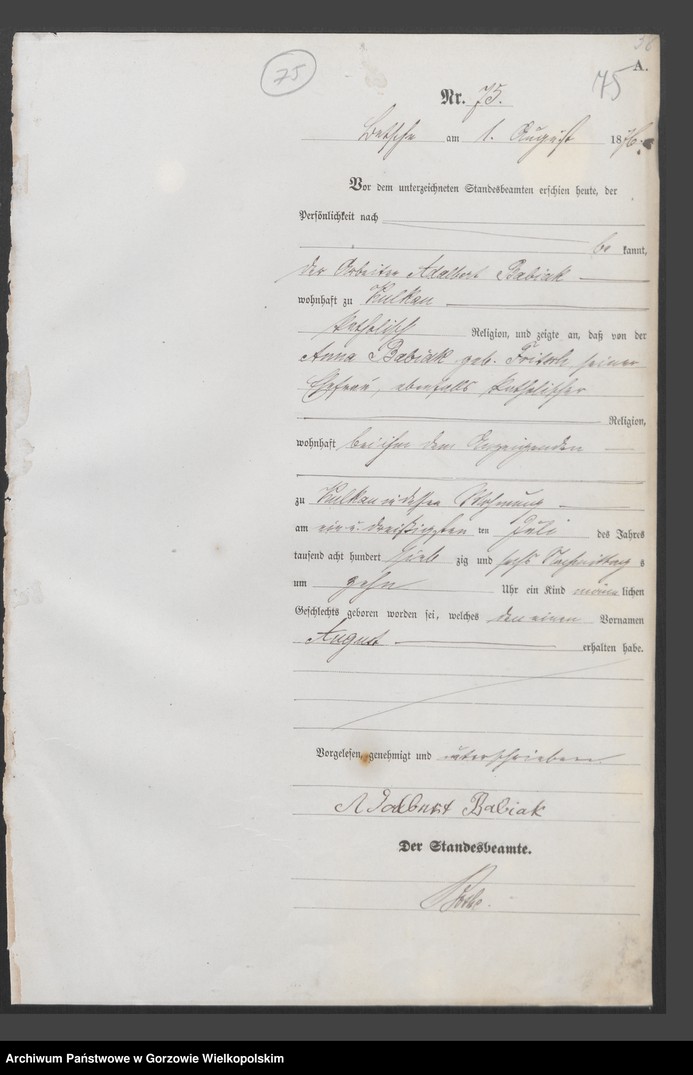 56
A.
75
75
Nr. 75.
Betsche am 1. August 1876.
Vor dem unterzeichneten Standesbeamten erschien heute, der
Persönlichkeit nach
be kannt,
der Arbeiter Adalbert Babiak
wohnhaft zu Kulkau
katholisch Religion, und zeigte an, daß von der
Anna Babiak geb. Fritsch seiner
Ehefrau, ebenfalls katholischer
Religion,
wohnhaft bei ihm dem Anzeigenden
zu Kulkau in dessen Wohnung
am ein u. dreißigsten ten Juli des Jahres
tausend acht hundert sieb zig und sechs Nachmittag s
um zehn Uhr ein Kind männ lichen
Geschlechts geboren worden sei, welches den einen Vornamen
August erhalten habe.
Vorgelesen, genehmigt und unterschrieben
Adalbert Babiak
Der Standesbeamte.
Archiwum Państwowe w Gorzowie Wielkopolskim